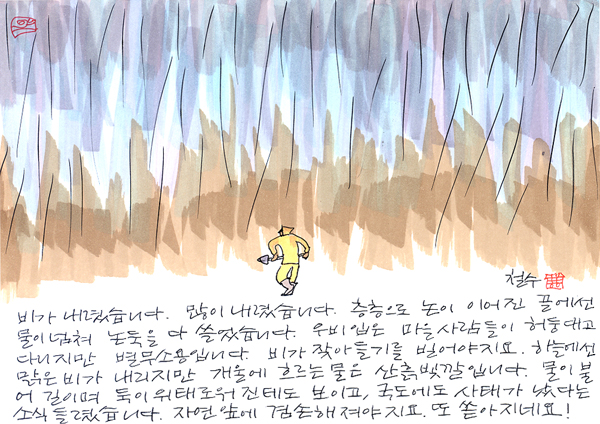 철수
비가 내렸습니다. 많이 내렸습니다. 층층으로 논이 이어진 끝에선
물이 넘쳐 논둑을 다 쓸었습니다. 우비 입은 마을사람들이 허둥대고
다니지만 별무소용입니다. 비가 잦아들기를 빌어야지요. 하늘에선
맑은 비가 내리지만 개울에 흐르는 물은 산흙빛깔입니다. 물이 불
어 길이며 둑이 위태로워진 데도 보이고, 국도에도 사태가 났다는
소식 들렸습니다. 자연 앞에 겸손해져야지요. 또 쏟아지네요!